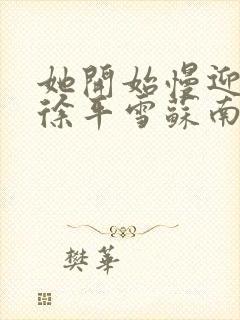 她開始慢迎
徐平雪蘇南
樊華